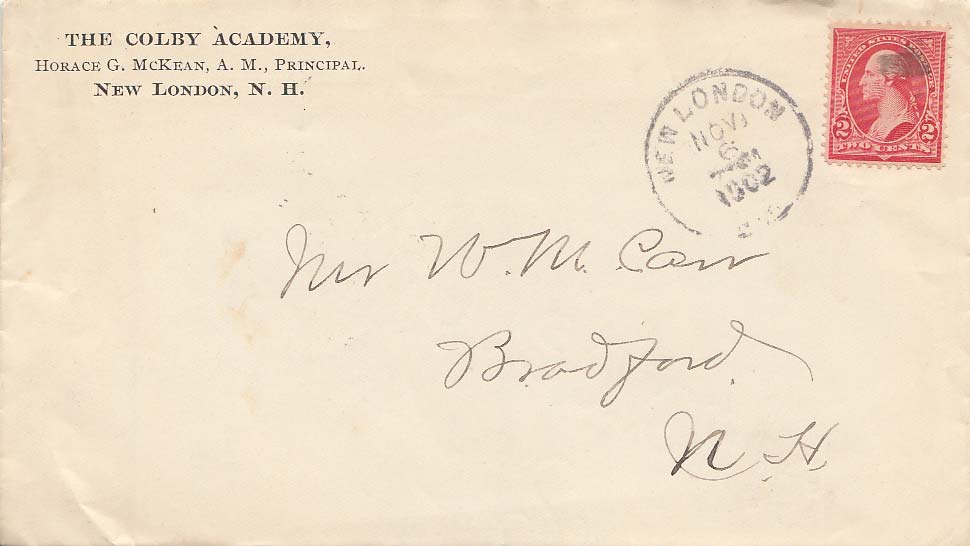 THE COLBY ACADEMY,
HORACE G. MCKEAN, A. M., PRINCIPAL.
NEW LONDON, N. H.
UNITED STATES POSTAGE
2 2
TWO CENTS
NEW LONDON
NOV
1902
Mr W. M. Carr
Bradford.
N. H.